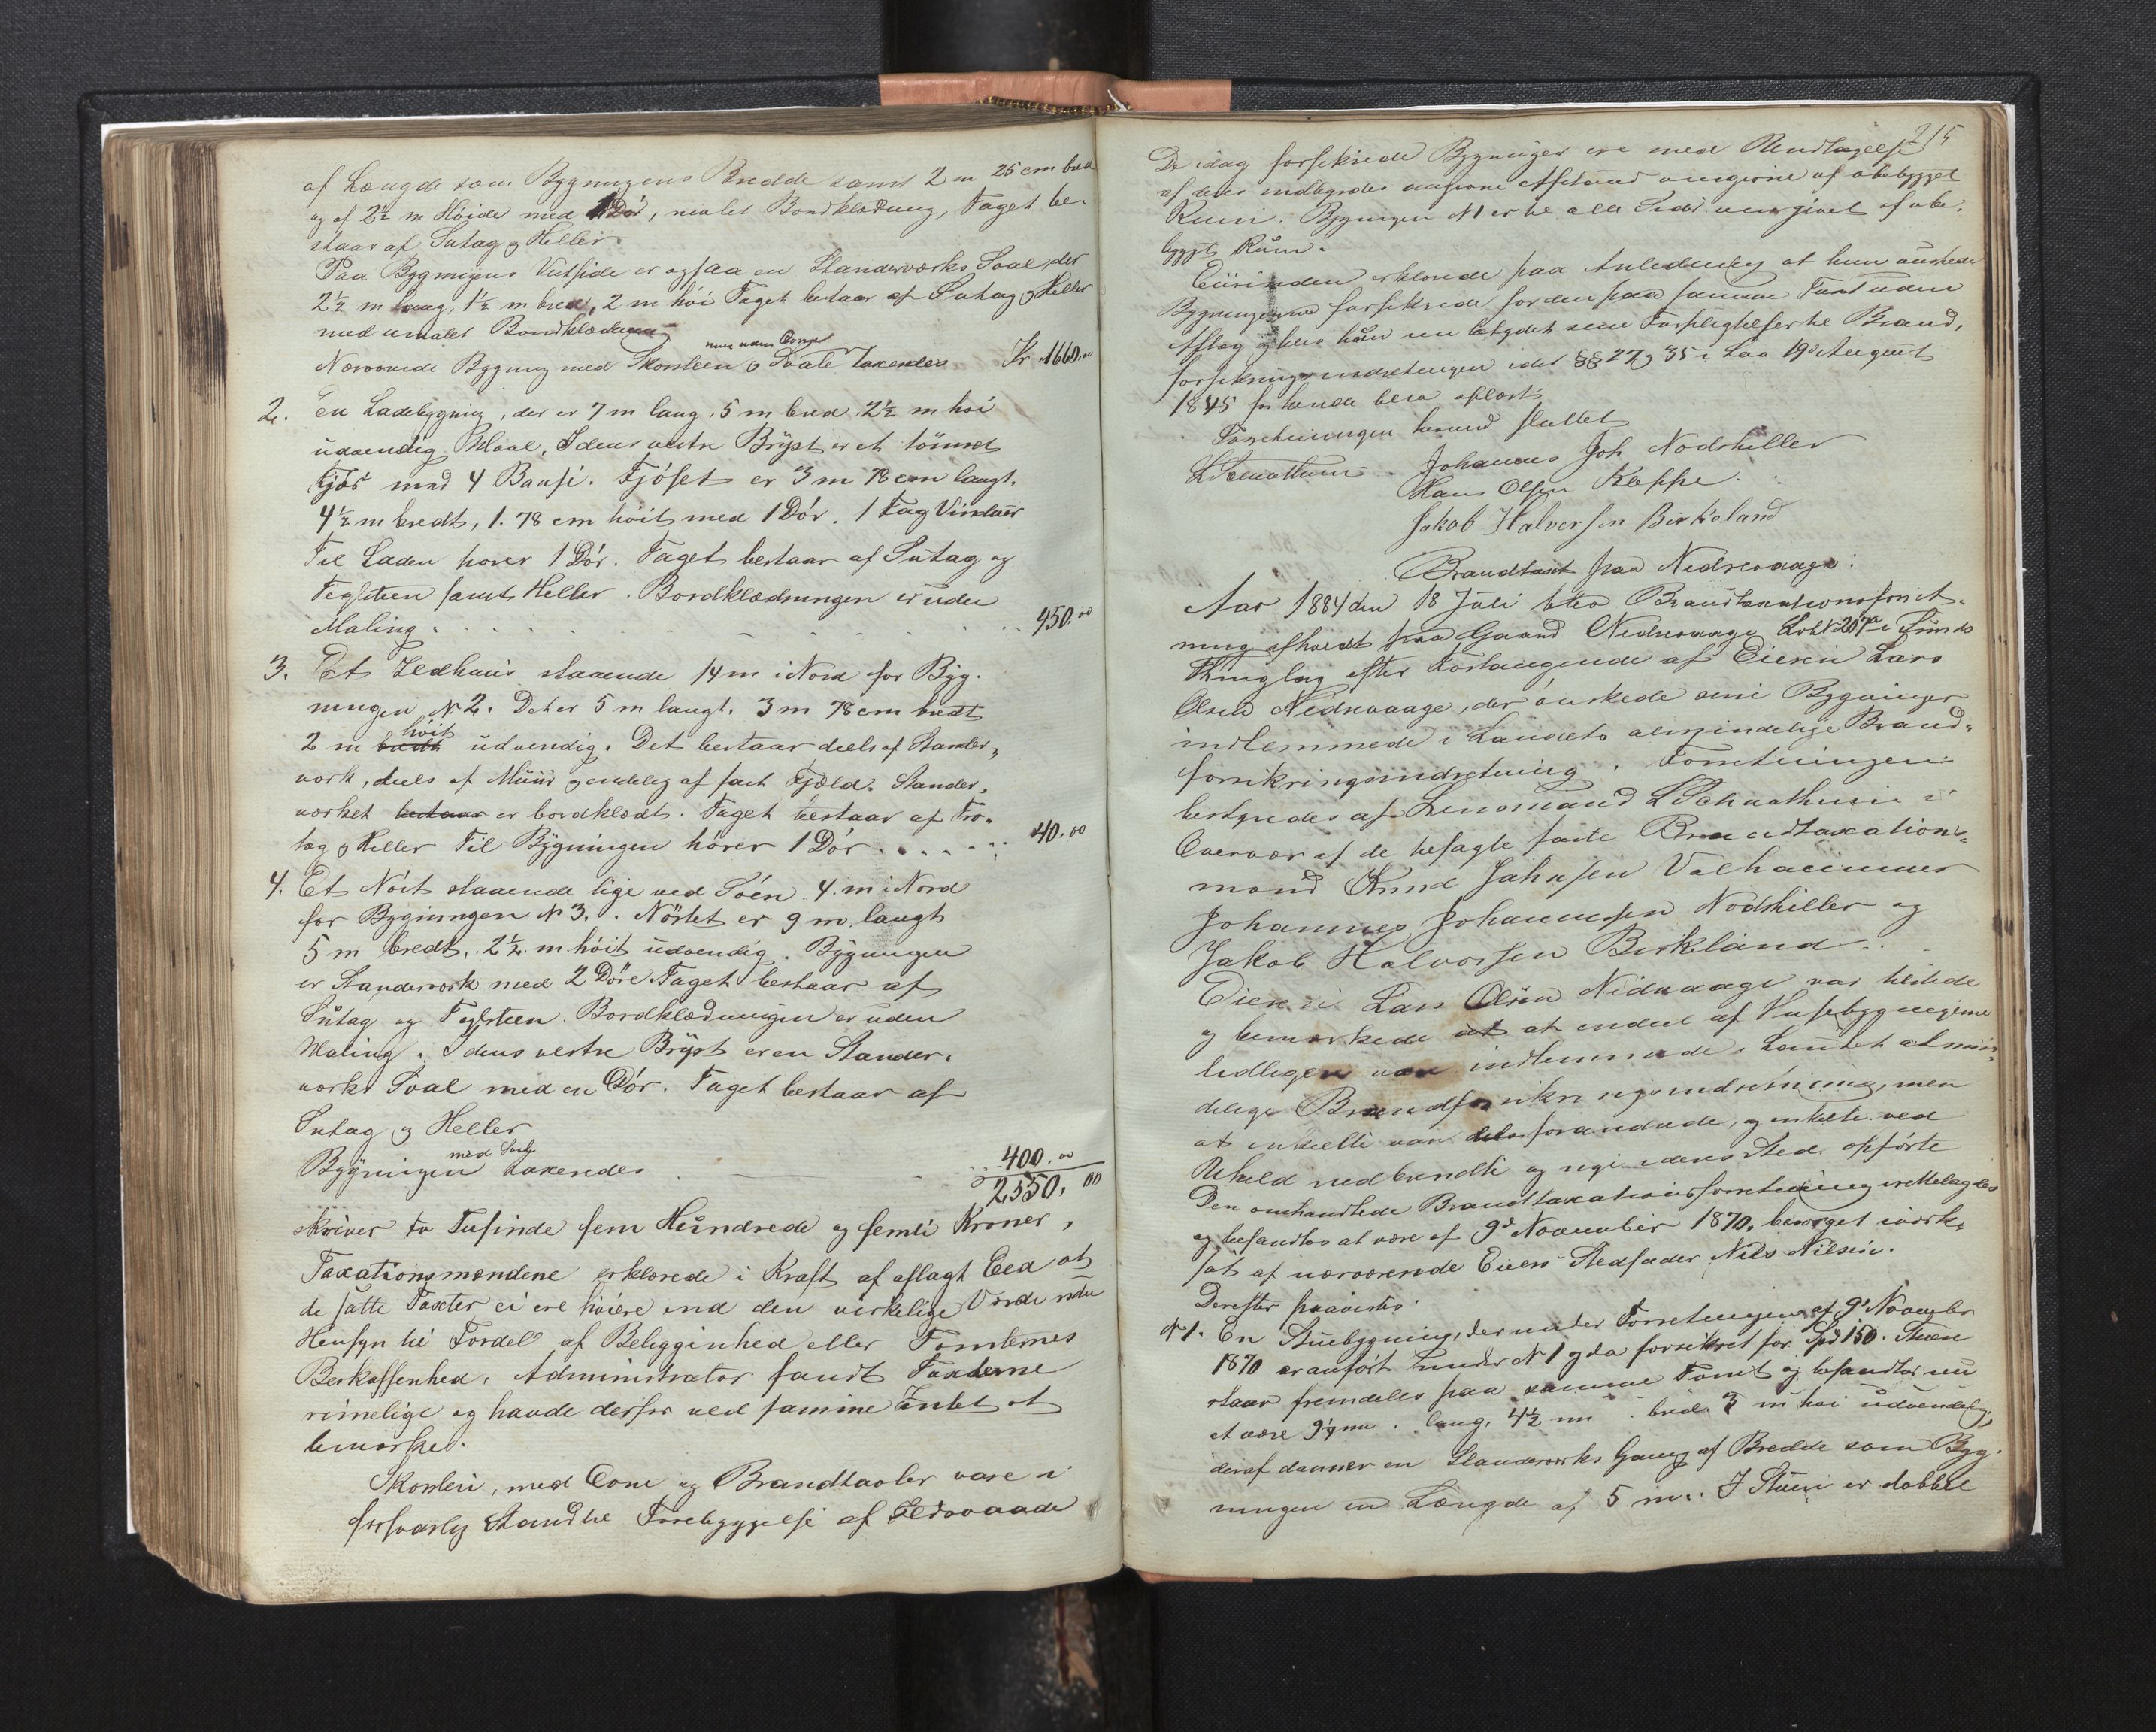 af Længde som Bygningens Bredde samt 2 m 25 cm bred
og af 2½ m Höide med 1 Dör, malet Bordklædning, Taget be-
staar af Sutag og Heller.
Paa Bygningens Vestside er ogsaa en Standerværks Sval, der
2½ m lang, 1½ m bred, 2 m höi Taget bestaar af Sutag og Heller
med umalet Bordklædning
men uden Comf
Nærværende Bygning med Skorsteen og Svale taxeredes Kr. 1660.00
2. En Ladebygning, der er 7 m lang, 5 m bred 2½ m höi
udvendig Maal. I dens vestre Bryst er et tömret
Fjös med 4 Baase. Fjöset er 3 m 78 cm langt.
4½ m bredt, 1.78 cm höit med 1 Dör. 1 Fag Vinduer
Til Laden hörer 1 Dör. Taget bestaar af Sutag og
Teglsteen samt Heller. Bordklædningen er uden
Maling. 450.00
3. Et Ildhuus staaende 14 m i Nord for Byg-
ningen N 2. Det er 5 m langt. 3 m 78 cm bredt
höit
2 m bredt udvendig. Det bestaar deels af Stander-
værk, deels af Muur og endelig af fast Fjeld. Stander-
værket bestaar er bordklædt. Taget bestaar af Tro-
tag og Heller Til Bygningen hörer 1 Dör 40.00
4. Et Nöst staaende lige ved Söen 4. m i Nord
for Bygningen N 3. Nöstet er 9 m. langt
5 m bredt, 2½ m. höit udvendig. Bygningen
er Standerværk med 2 Döre. Taget bestaar af
Sutag og Teglsteen. Bordklædningen er uden
Maling. I dens vestre Bryst er en Stander-
værks Sval med en Dör. Taget bestaar af
Sutag og Heller
med Sval
Bygningen taxeredes 400.00
2550.00
skriver to Tusinde fem Hundrede og femti Kroner,
Taxationsmændene erklærede i Kraft af aflagt Eed at
de satte Taxter ei ere höiere end den virkelige Værdi uden
Hensyn til Fordel af Beliggenhed eller Tomternes
Beskaffenhed. Administrator fandt Taxterne
rimelige og havde derfor ved samme Intet at
bemærke.
Skorsten, med Comf og Brandtavler vare i
forsvarlig Stand til Forebyggelse af Ildsvaade
215
De idag forsikrede Bygninger ere med Undtagelse
af deres indbyrdes anförte Afstand omgivne af ubebygget
Rum. Bygningen N 1 er til alle Sider omgivet af ube-
bygget Rum.
Eierinden erklærede paa Anledning at hun önskede
Bygningerne forsikrede for den paa samme Taxt uden
Afslag og blev hun betydet sine Forpligtelser til Brand-
forsikringsindretningen idet §§ 27 og 35 i Lov 19de August
1845 for hende blev oplæst
Forretningen hermed sluttet
Johannes Joh Nodskeller
Hans Olsen Kleppe
Jakob Halversen Birkeland
Brandtaxt paa Nedrevaage.
Aar 1884 den 18 Juli blev Brandtaxationsforret-
ning afholdt paa Gaard Nedrevaage Lob N 207a i Sunds
Thinglag efter Forlangende af Eieren Lars
Olsen Nedrevaage, der önskede sine Bygninger
indlemmede i Landets almindelige Brand-
forsikringsindretning. Forretningen
bestyredes af Lensmand i
Overvær af de befaste faste Brandtaxations-
mænd Knud Johnsen Valhammer
Johannes Johannessen Nodskeller og
Jakob Halvorsen Birkeland.
Eieren Lars Olsen Nedrevaage var tilstede
og bemærkede at at endeel af Husebygningerne
tidligere var indlemmede i Landets almin-
delige Brandforsikringsindretning, men
at enkelte vare dels forandrede, og enkelte ved
Uheld nedbrendte og nye i deres Sted opförte
Den omhandlede Brandtaxationsforretning irettelagdes
og befandtes at være af 9de November 1870, besörget iværk-
sat af nærværende Eiers Stedfader Nils Nilsen.
Derefter fraværtes
N 1. En Stuebygning, der under Forretningen af 9de November
1870 er anfört under N 1 og da forsikret for Spd 150. Stuen
staar fremdeles paa samme Tomt og befandtes nu
at være 9¼ m lang, 4½ m bred 3 m höi udvendig,
deraf danner en Standerværks Gang af Bredde som Byg-
ningen en Længde af 5 m. I Stuen er dobbelt